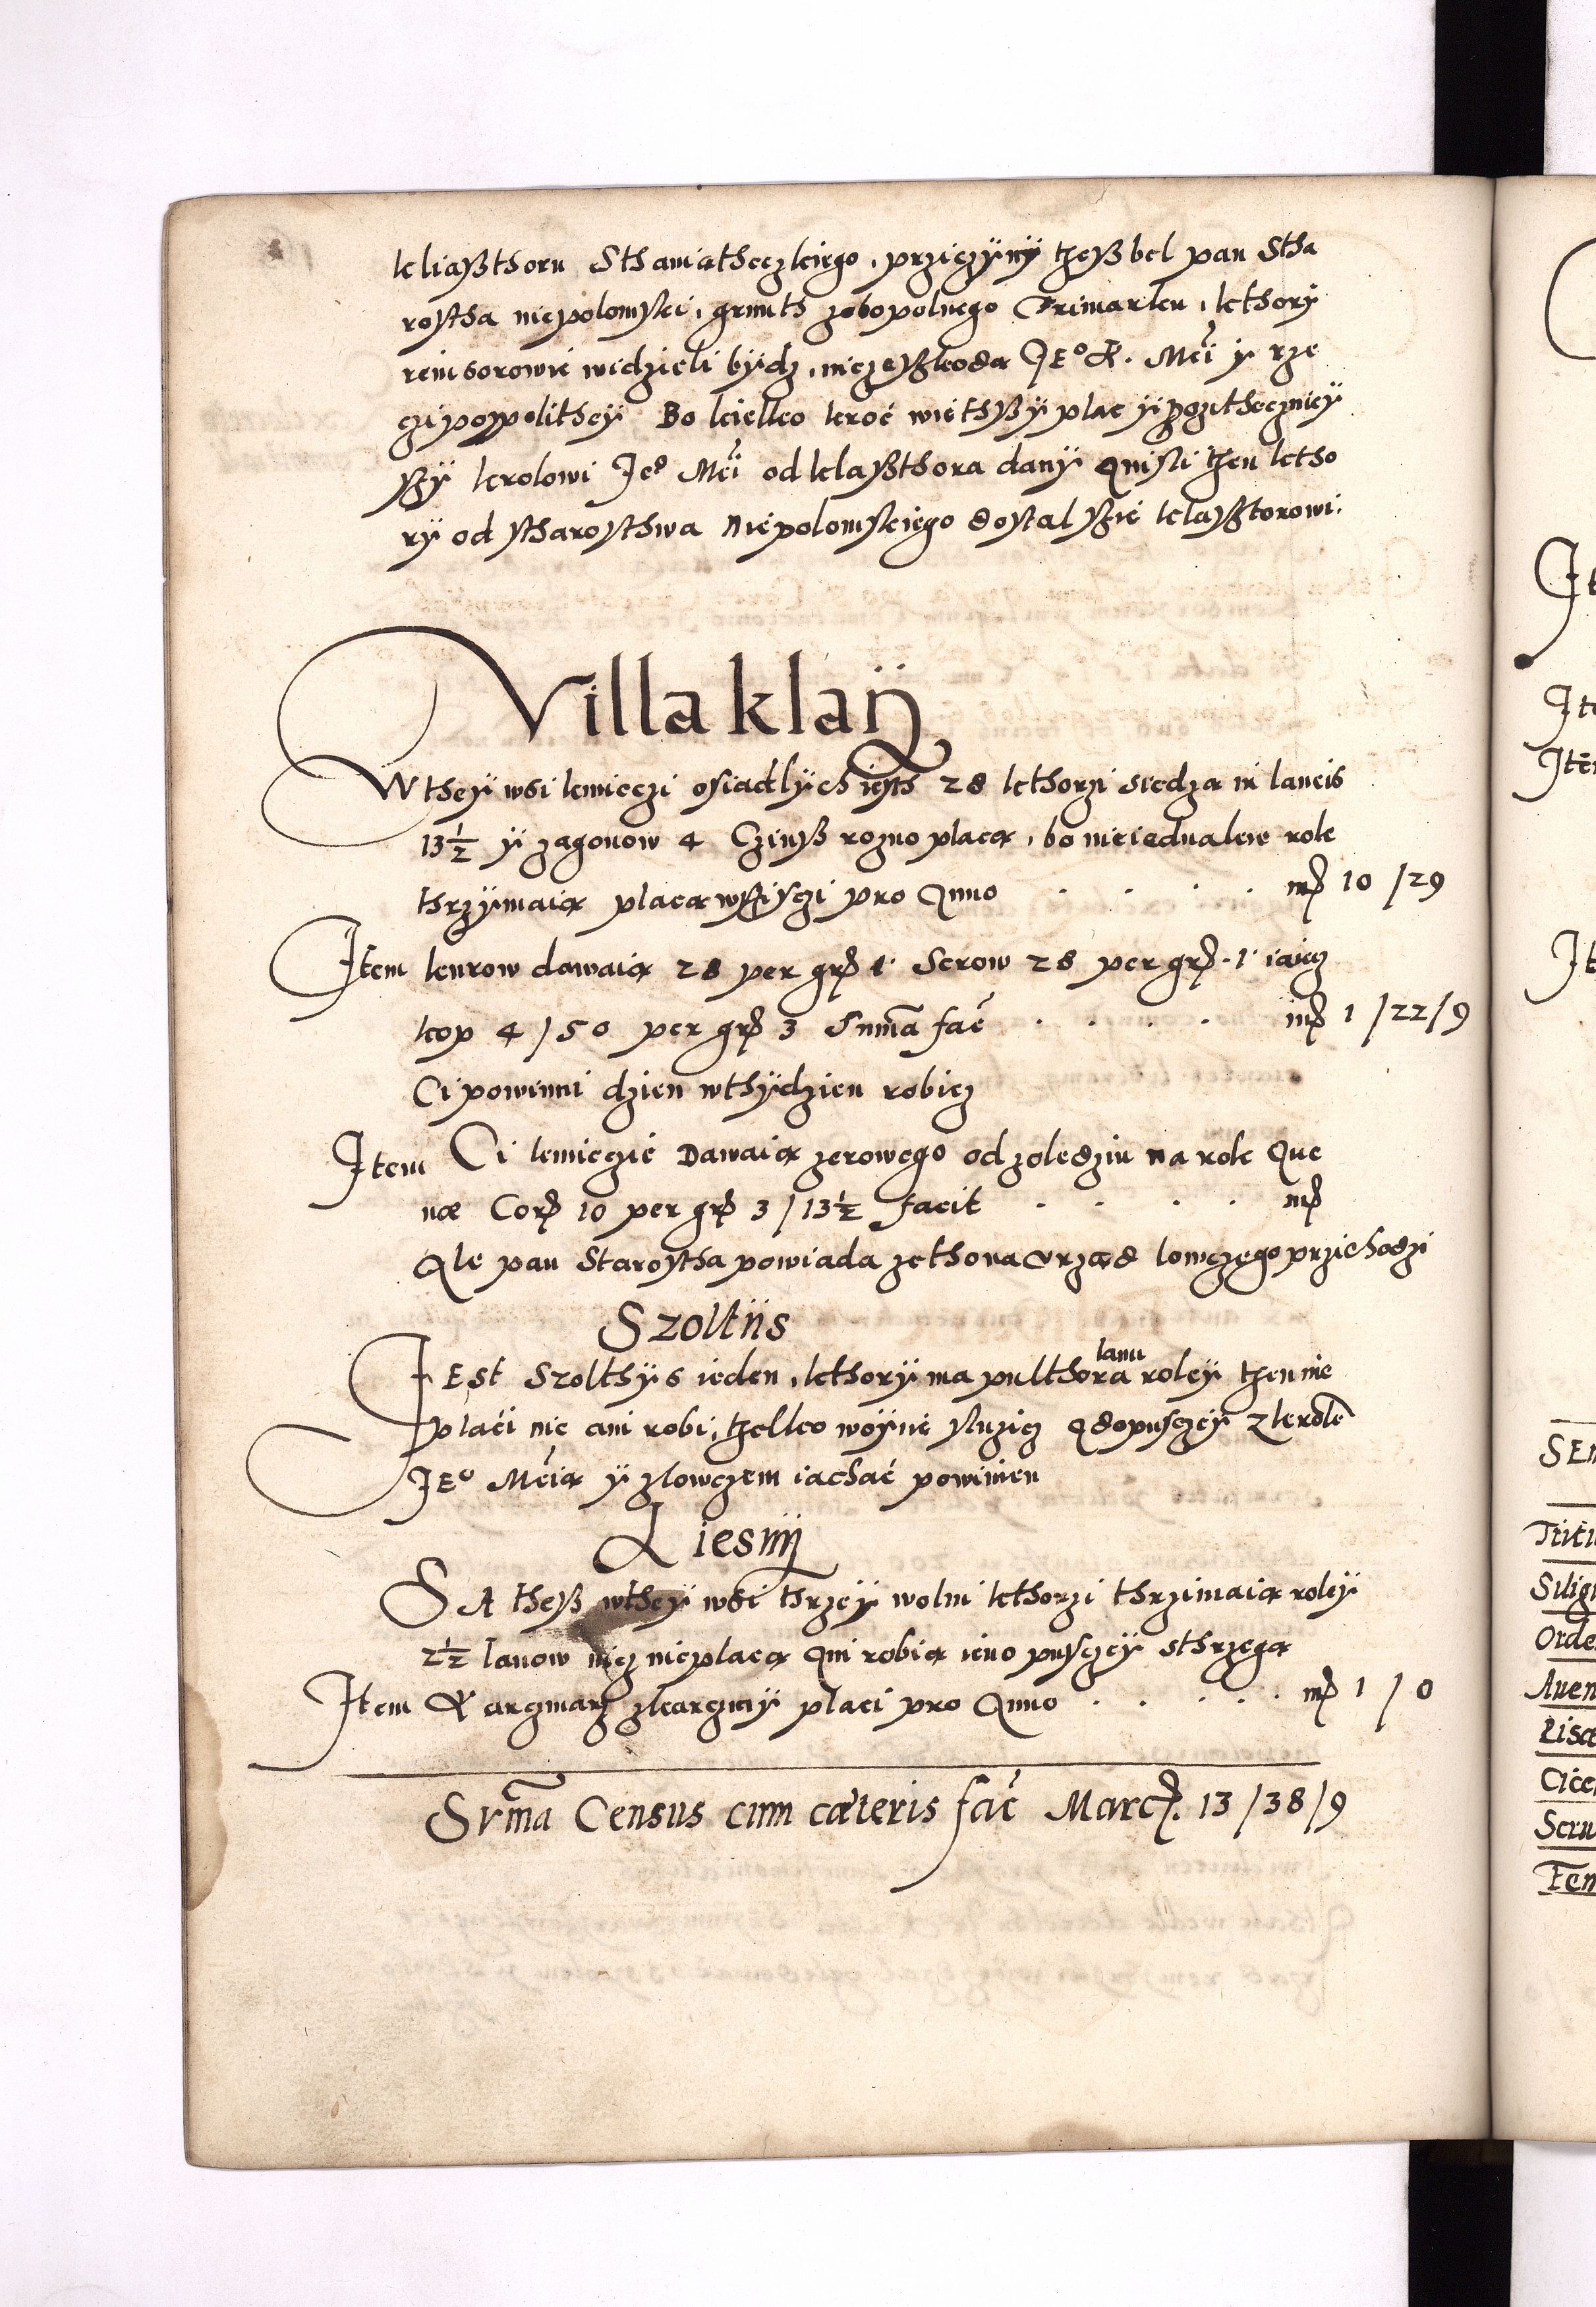 kliaßthoru Sthaniatheczkiego, prziczÿnÿ theß bel pan Stha
rostha niepolomski, grunth zobopolnego Frimarku, kthorÿ
reuisorowie widzieli bÿdz, niezeßkoda JE° K. Mći ÿ rze
czipospolitheÿ Bo kielko kroć wiethßÿ plac ÿ pozithecznieÿ
ßÿ krolowi Je° Mći od klaßthora danÿ anisli then ktho
rÿ od stharosthwa Niepolomskiego dostal ßie klaßtorowi.
Villa klaÿ
W theÿ wsi kmieczi osiadlÿch iesth 28 kthorzi siedza in laneis
13½ ÿ zagonow 4 Czinß rozno placą, bo nieiednakie role
thrzÿmaią placą wßisczi pro Anno . . . . mɼ 10 /29
Item kurow dawaią 28 per grɼ 1 Serow 28 per grɼ. 1 iaiez
kop 4 /50 per grɼ 3 Summa fać . . . . mɼ 1 /22/9
Ci powinni dzien wthÿdzien robicz
Item Ci kmieczie Dawaią zerowego od zoledziu na rok Aue
næ Corɼ 10 per grɼ 3 /13½ facit . . . . mɼ
Ale pan Starostha powiada ze tho na vrzad lowczego prziehodzi
Szoltiis
JEst Szolthÿs ieden, kthorÿ ma pulthora lanu roleÿ then nie
placi nic ani robi, thelko woÿnie sluzicz a do pusczeÿ z krolē
JE° Mćią ÿ z lowczem iachać powinien
Liesnÿ
SA theß wtheÿ wsi thrzeÿ wolni kthorzi thrzimaią roleÿ
2½ lanow nicz nieplacą Ani robią ieno pusczeÿ sthrzegą
Item Karczmarz zkarczmÿ placi pro Anno . . . . . mɼ 1 / 0
Svm̄a Census cum cæteris fać Marcɼ. 13 /38/9